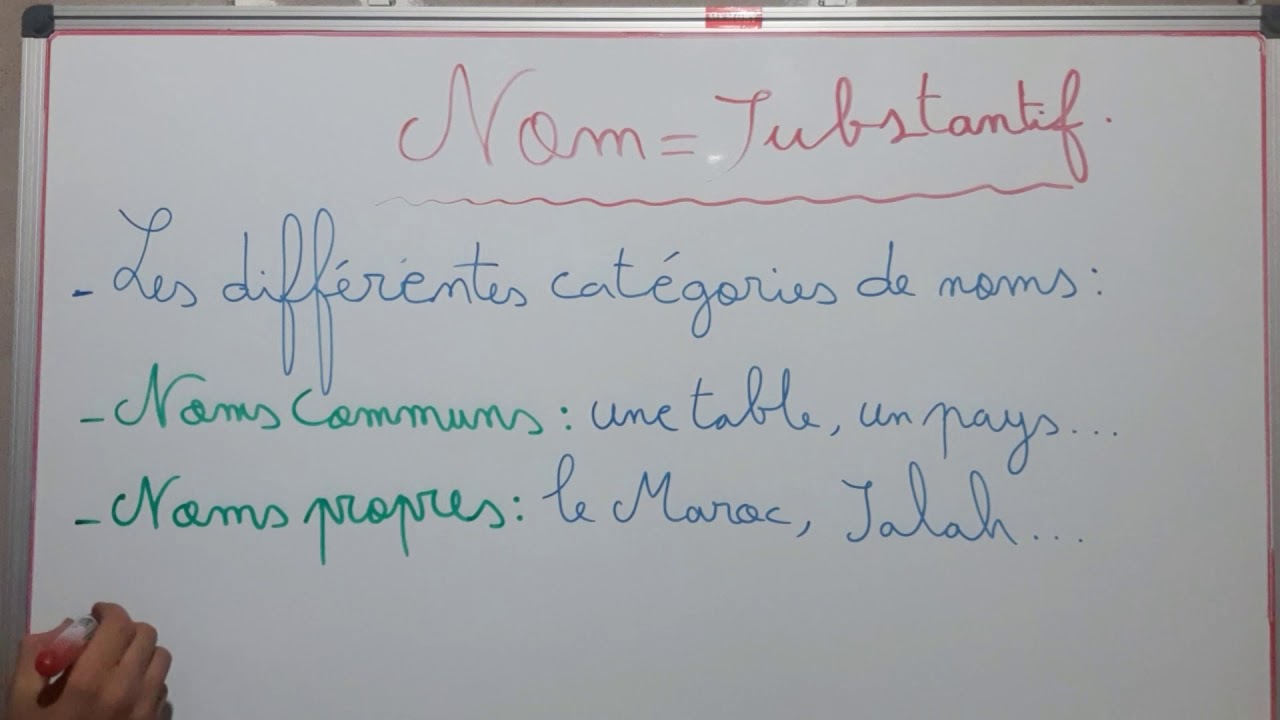 Nom = Substantif.
- Les différentes catégories de noms :
- Noms Communs : une table, un pays...
- Noms propres : le Maroc, Salah...